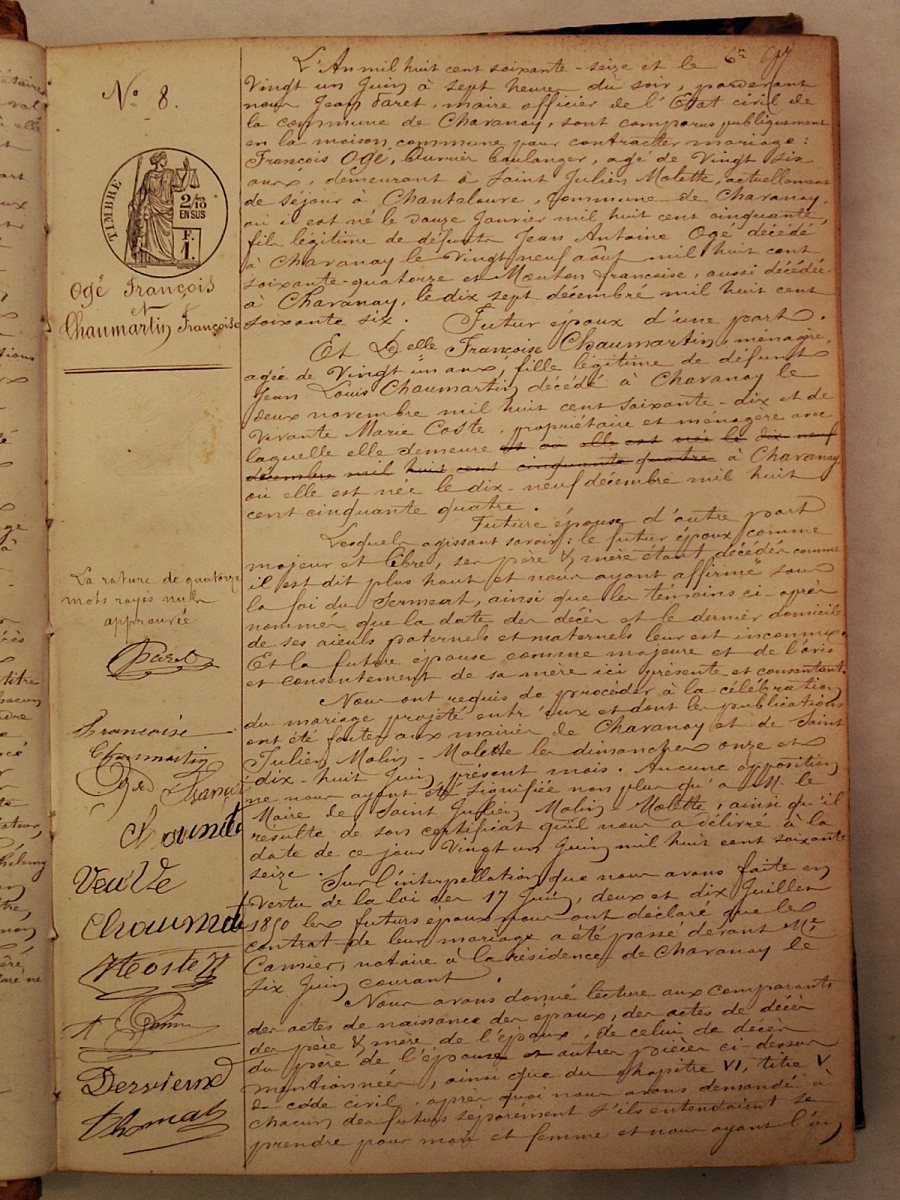 N° 8.
TIMBRE
2/10
EN SUS
F.
1.
Ogé François
et
Chaumartin Françoise
La rature de quatorze
mots rayés nuls
approuvée
Paret
Françoise
Chaumartin
Ogé François
Veuve
Chaumat
Dervieux
Thomas
6e
L'An mil huit cent soixante-seize et le
Vingt un Juin à sept heures du soir, pardevant
nous Jean Paret, maire officier de l'Etat civil de
la commune de Chavanay, sont comparus publiquement
en la maison commune pour contracter mariage :
François Ogé, Ouvrier boulanger, agé de Vingt six
ans, demeurant à Saint Julien Molette, actuellement
de séjour à Chanteloure, commune de Chavanay,
où il est né le douze Janvier mil huit cent cinquante,
fils légitime de défunts Jean Antoine Ogé décédé
à Chavanay le Vingt neuf aout mil huit cent
soixante-quatorze et Mouton françoise, aussi décédée
à Chavanay, le dix sept décembre mil huit cent
soixante six. Futur époux d'une part.
Et Delle Françoise Chaumartin, ménagère,
agée de Vingt un ans, fille légitime de défunt
Jean Louis Chaumartin, décédé à Chavanay le
deux novembre mil huit cent soixante-dix et de
Vivante Marie Coste, propriétaire et ménagère avec
laquelle elle demeure et où elle est née le dix neuf
décembre mil huit cent cinquante quatre à Chavanay
où elle est née le dix-neuf décembre mil huit
cent cinquante quatre.
Future épouse d'autre part
Lesquels agissant savoir : le futur époux comme
majeur et libre, ses père & mère étant décédés comme
il est dit plus haut et nous ayant affirmé sous
la foi du Serment, ainsi que les témoins ci-après
nommés que la date des décès et le dernier domicile
de ses aïeuls paternels et maternels leur est inconnu.
Et la future épouse comme majeure et de l'avis
et consentement de sa mère ici présente et consentant.
Nous ont requis de procéder à la célébration
du mariage projeté entr'eux et dont les publications
ont été faites aux mairies de Chavanay et de Saint
Julien Molin-Molette les dimanches onze et
dix-huit Juin présent mois. Aucune opposition
ne nous ayant été signifiée non plus qu'à M. le
Maire de Saint Julien Molin Molette, ainsi qu'il
résulte de son certificat qu'il nous a délivré à la
date de ce jour Vingt un Juin mil huit cent soixante
seize. Sur l'interpellation que nous avons faite en
vertu de la loi des 17 Juin, deux et dix Juillet
1850 les futurs époux nous ont déclaré que le
contrat de leur mariage a été passé devant Me
notaire à la résidence de Chavanay le
six Juin courant.
Nous avons donné lecture aux comparants
des actes de naissance des époux, des actes de décès
des père & mère de l'époux, de celui de décès
du père de l'épouse et autres pièces ci-dessus
mentionnées, ainsi que du chapitre VI, titre V
du code civil, après quoi nous avons demandé à
chacun des futurs séparément s'ils entendaient se
prendre pour mari et femme et nous ayant l'un